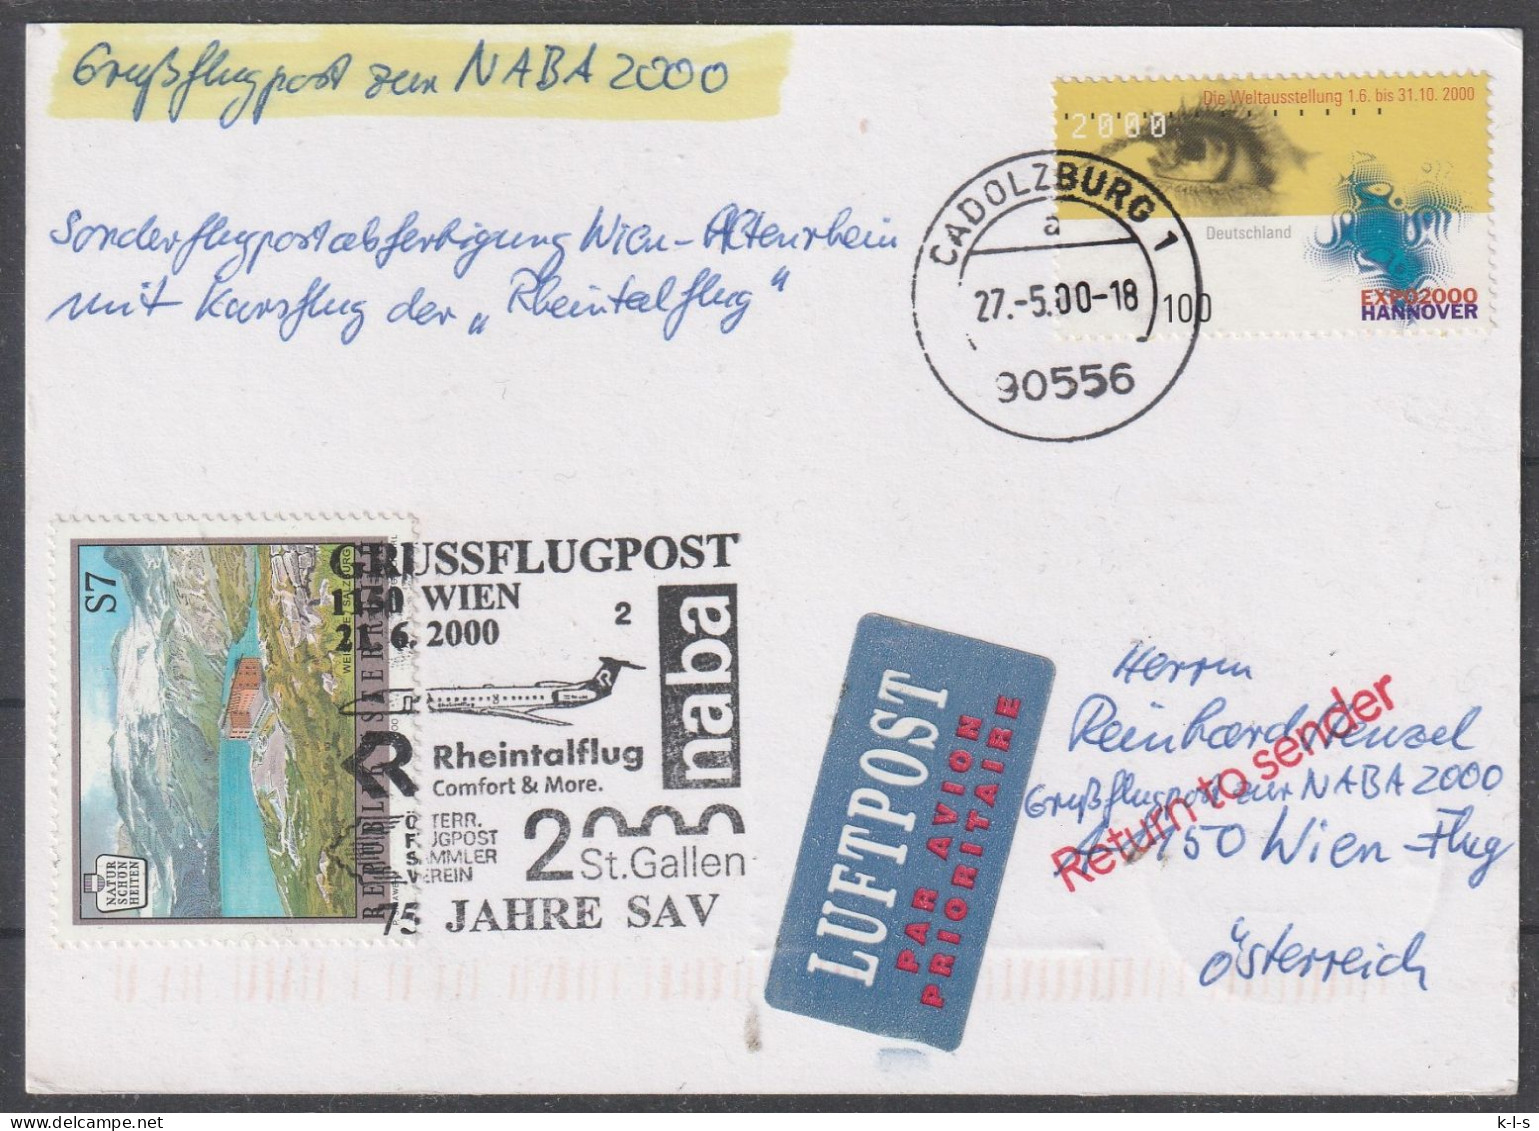 Grußflugpost zur NABA 2000
Die Weltausstellung 1.6. bis 31.10. 2000
2000
Deutschland
EXPO2000
HANNOVER
100
CADOLZBURG 1
a
27.-5.00-18
90556
Sonderflugpostabfertigung Wien-Altenrhein
mit Kursflug der „Rheintalflug"
S7
REPUBLIK ÖSTERREICH
NATUR
SCHÖN
HEITEN
GRUSSFLUGPOST
1150 WIEN
2
21.6.2000
naba
Rheintalflug
Comfort & More.
ÖSTERR.
FLUGPOST
SAMMLER
VEREIN
2000
St.Gallen
75 JAHRE SAV
LUFTPOST
PAR AVION
PRIORITAIRE
Herrn
Reinhard Wenzel
Grußflugpost zur NABA 2000
A-1150 Wien-Flug
Österreich
Return to sender
k-l-s